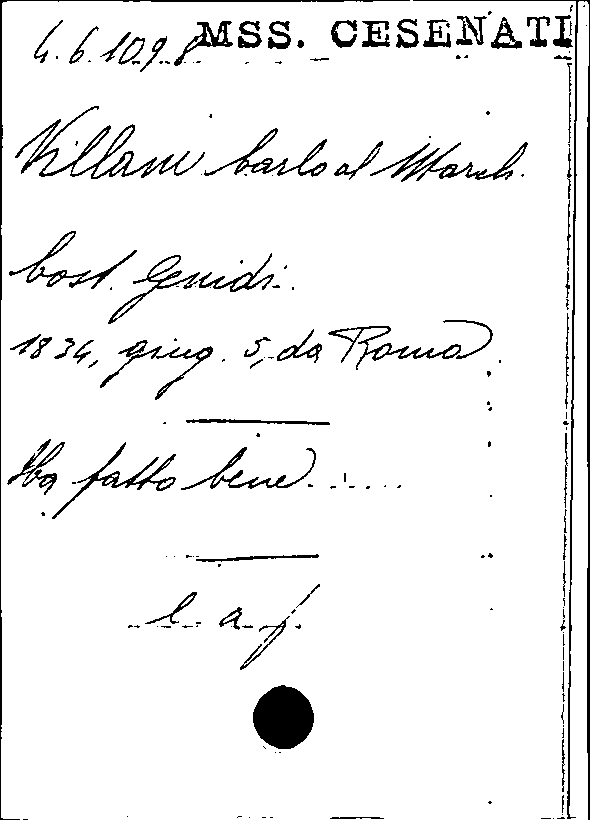 4.6.1098 MSS. CESENATI
Villani Carlo al March.
Cost. Guidi.
1834, giug. 5, da Roma
Ha fatto bene......
l. a. f.